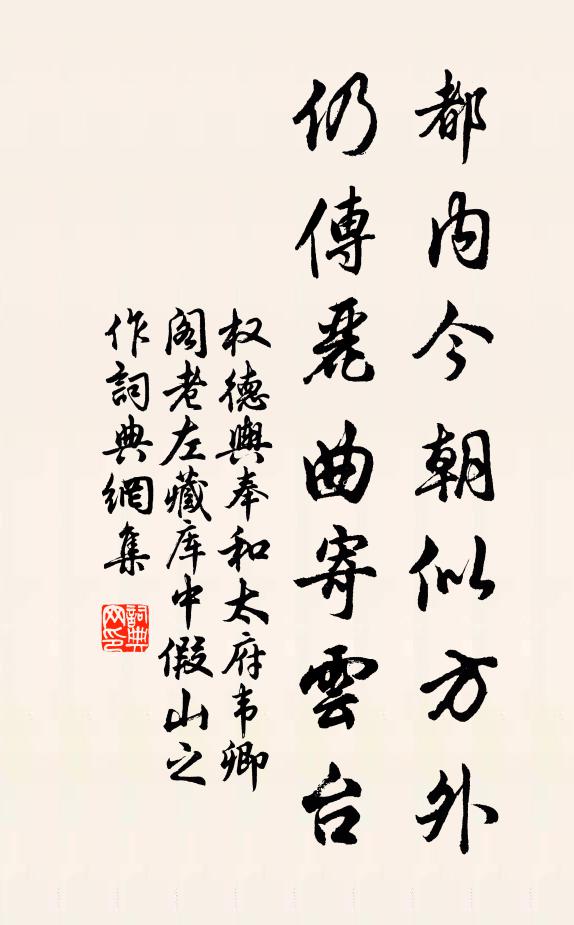 都内今朝似方外
仍傳麗曲寄雲台
权德輿奉和太府韦卿
阁老左藏库中假山之
作詞典網集
詞典
网印